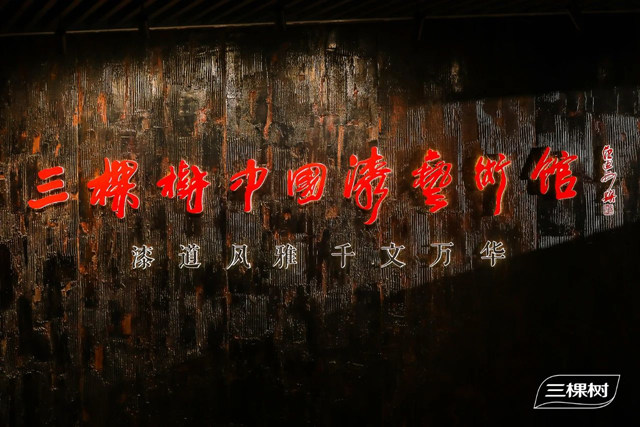 三棵樹中國漆藝術馆
漆道风雅 千文万华
三棵树